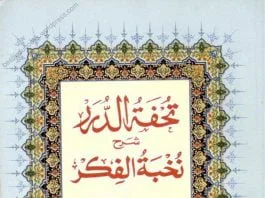 تحفۃ الدرر
شرح
نخبة الفكر